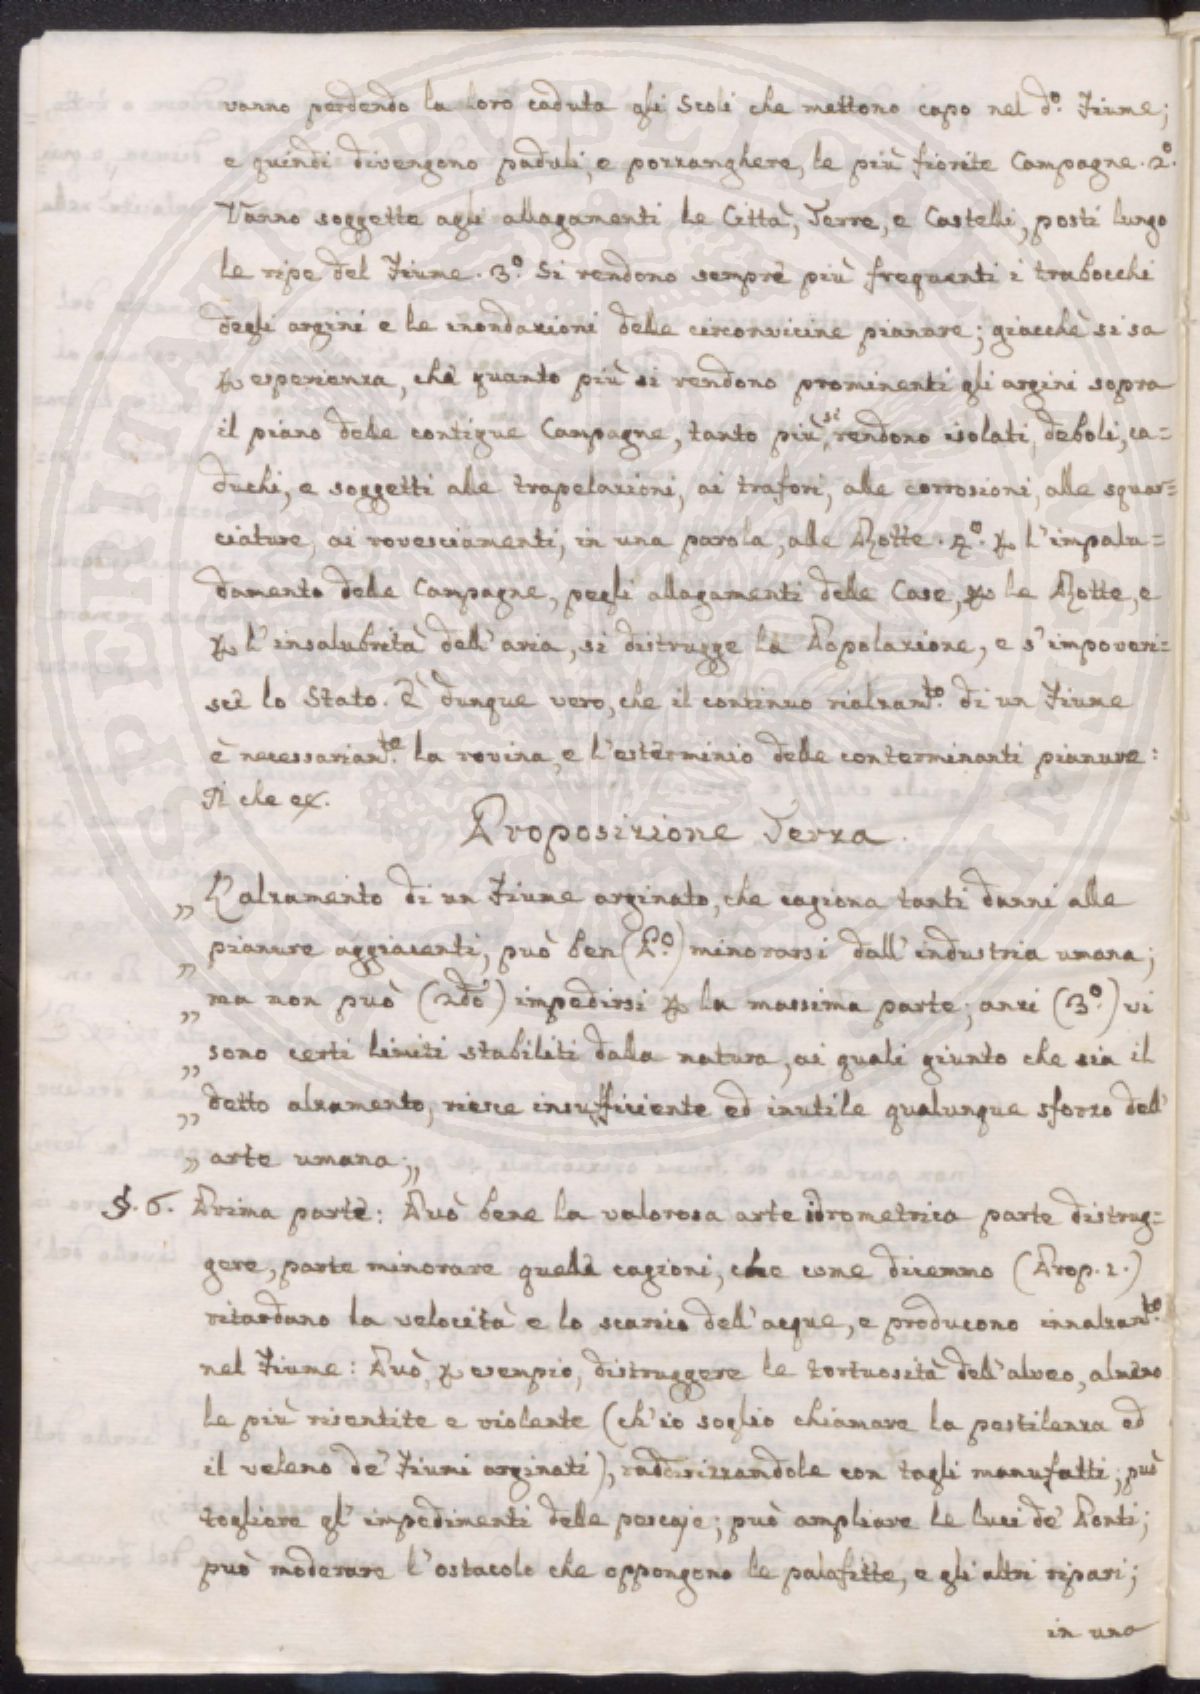 vanno perdendo la loro caduta gli Scoli che mettono capo nel dº. Fiume;
e quindi divengono paduli, e pozzanghere, le più fiorite Campagne. 2º.
Vanno soggette agli allagamenti le Città, Terre, e Castelli, posti lungo
le ripe del Fiume. 3º. Si rendono sempre più frequenti i trabocchi
degli argini e le inondazioni delle circonvicine pianure; giacchè si sa
ꝑ esperienza, che quanto più si rendono prominenti gli argini sopra
il piano delle contigue Campagne, tanto più si rendono isolati, deboli, ca=
duchi, e soggetti alle trapelazioni, ai trafori, alle corrosioni, alle squar=
ciature, ai rovesciamenti, in una parola, alle Rotte. 4º. ꝑ l'impalu=
damento delle Campagne, pegli allagamenti delle Case, ꝑ le Rotte, e
ꝑ l'insalubrità dell'aria, si distrugge la Popolazione, e s'impoveri=
sce lo Stato. È dunque vero, che il continuo rialzam.to di un Fiume
è necessariam.te la rovina, e l'esterminio delle conterminanti pianure:
Il che &.
Proposizione Terza.
„ L'alzamento di un Fiume arginato, che cagiona tanti danni alle
„ pianure aggiacenti, può ben (Pº.) minorarsi dall'industria umana;
„ ma non può (2do) impedirsi ꝑ la massima parte; anzi (3º.) vi
„ sono certi limiti stabiliti dalla natura, ai quali giunto che sia il
„ detto alzamento, riesce insufficiente ed inutile qualunque sforzo dell'
„ arte umana;„
§. 6. Prima parte: Può bene la valorosa arte idrometrica parte distrug=
gere, parte minorare quelle cagioni, che come dicemmo (Prop. 1.)
ritardano la velocità e lo scarico dell'acque, e producono innalzam.to
nel Fiume: Può, ꝑ esempio, distruggere le tortuosità dell'alveo, almeno
le più risentite e violente (ch'io soglio chiamare la pestilenza ed
il veleno de' Fiumi arginati), raddirizzandole con tagli manufatti; può
togliere gl'impedimenti delle pescaje; può ampliare le luci de' Ponti;
può moderare l'ostacolo che oppongono le palafitte, e gli altri ripari;
in una
PROSPERITATI PUBLICAE